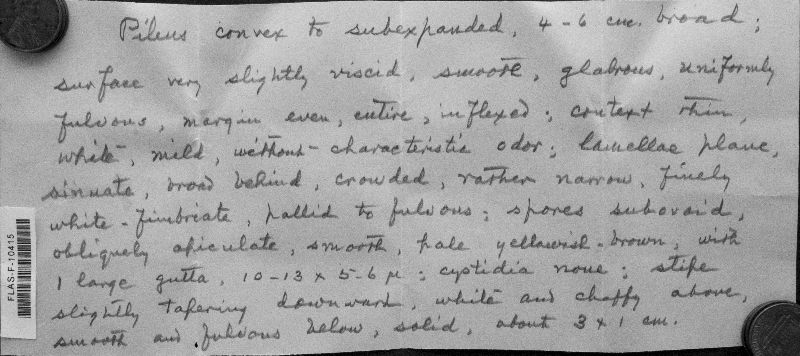 Pileus convex to subexpanded, 4-6 cm. broad;
surface very slightly viscid, smooth, glabrous, uniformly
fulvous, margin even, entire, inflexed; context thin,
white, mild, without characteristic odor; lamellae plane,
sinuate, broad behind, crowded, rather narrow, finely
white-fimbriate, pallid to fulvous; spores subovoid,
obliquely apiculate, smooth, pale yellowish-brown, with
1 large gutta, 10-13 x 5-6 µ; cystidia none; stipe
slightly tapering downward, white and chaffy above,
smooth and fulvous below, solid, about 3 x 1 cm.
FLAS-F-10415